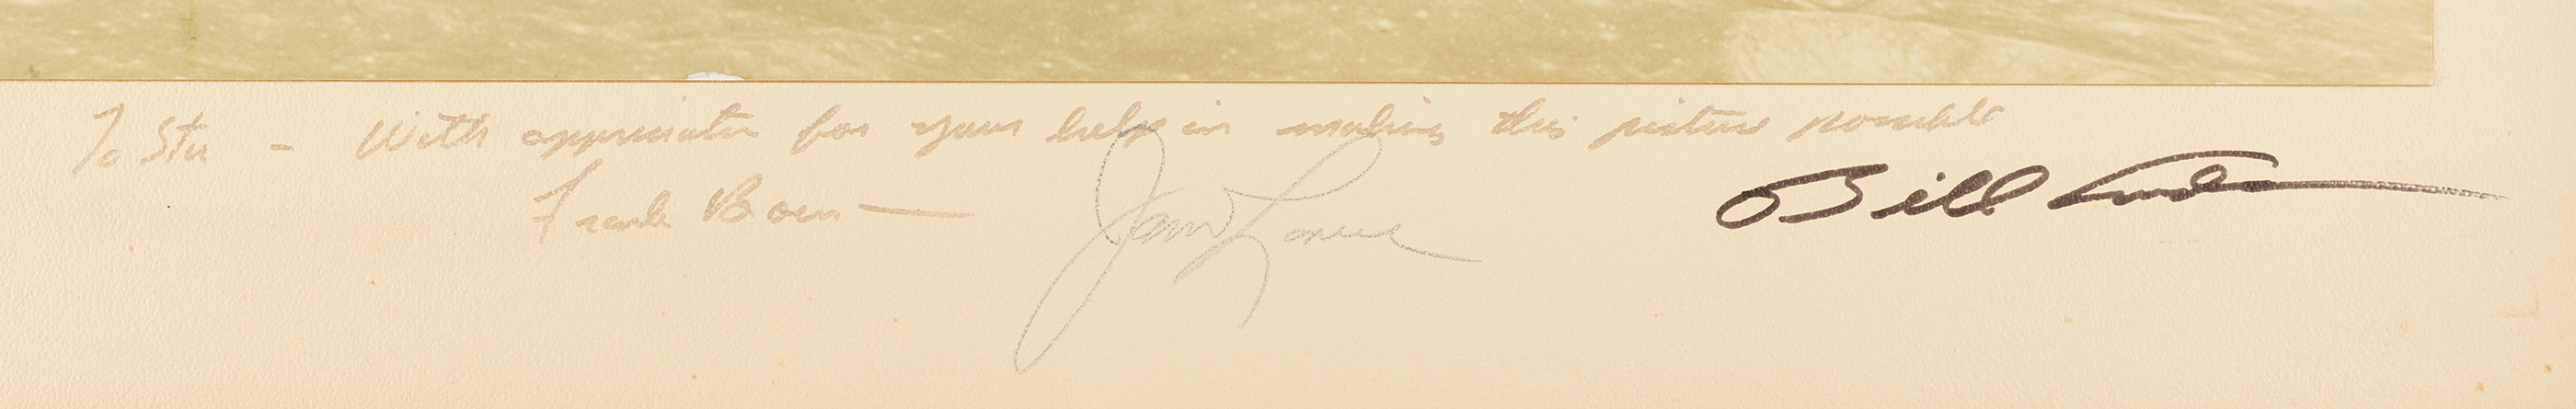 To Stu - With appreciation for your help in making this picture possible
Frank Borman James Lovell Bill Anders